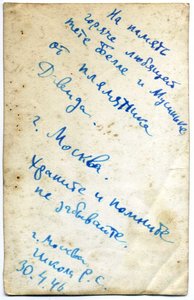 На память
горяче любящей
тете Фелле и Мусиньке
от плямятника
Давида.
г. Москва.
Храните и помните
не забывайте.
г. Москва
Школа Р. С.
30.4.46